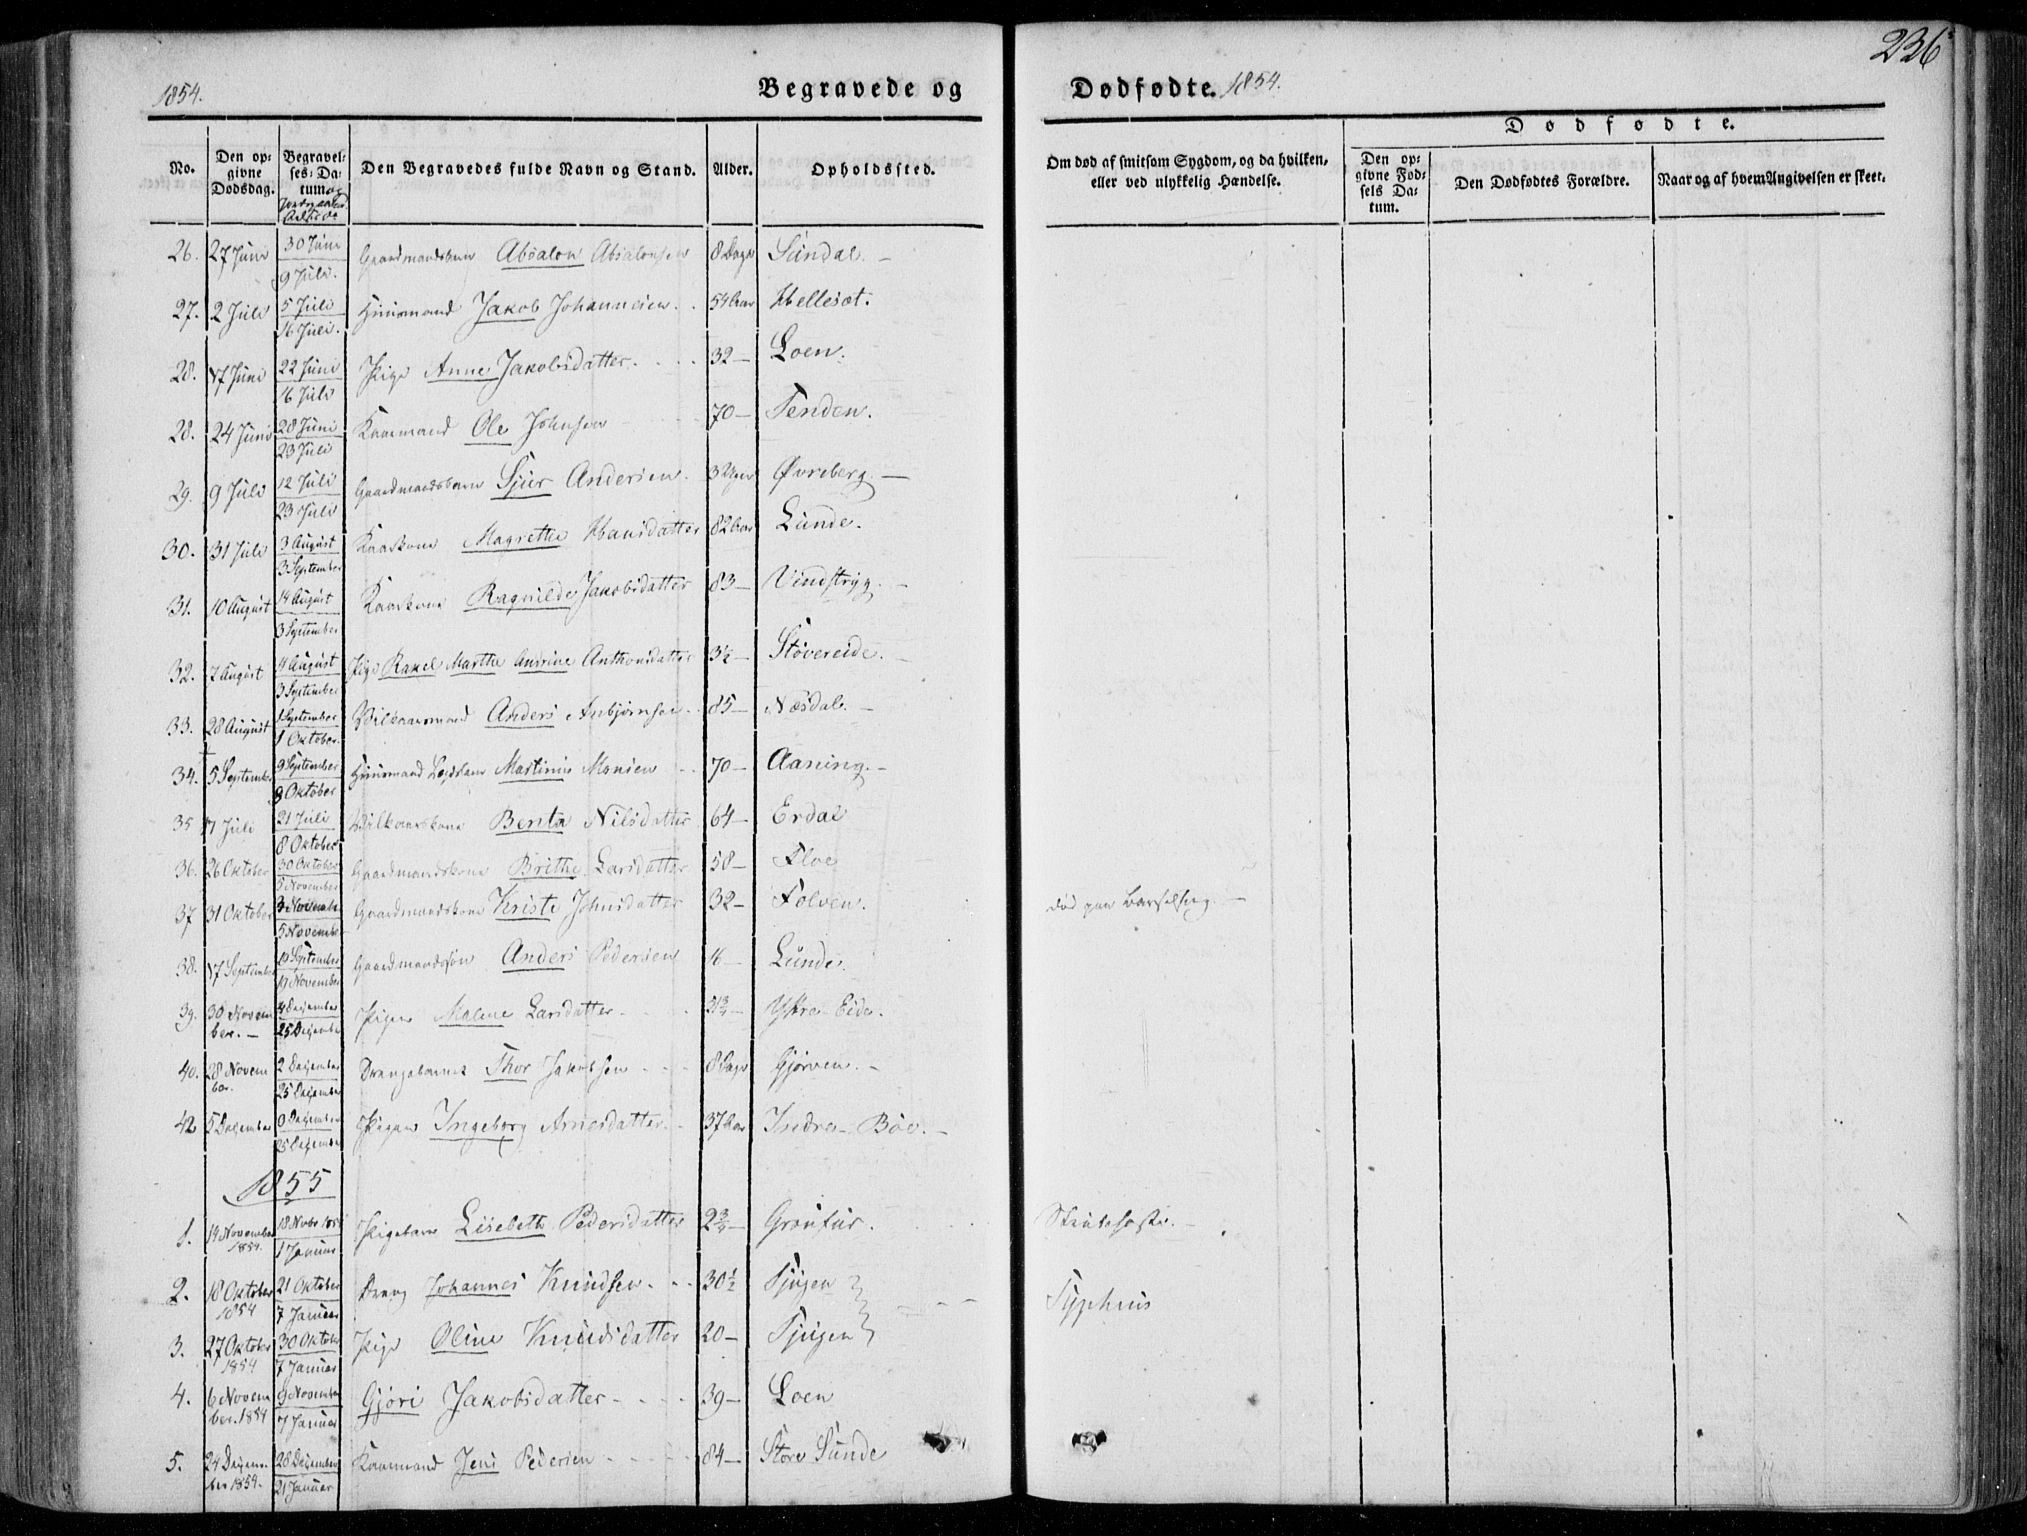 236
1854. Begravede og Dødfødte. 1854.
Dødfødte.
No. Den opgivne Dødsdag. Begravelses-Datum og Den Begravedes fulde Navn og Stand. Alder. Opholdssted. Om død af smitsom Sygdom, og da hvilken, eller ved ulykkelig Hændelse. Den opgivne Fødsels Datum. Den Dødfødtes Forældre. Naar og af hvem Angivelsen er skeet.
26. 27 Juni 30 Juni 9 Juli. Gaardmandsbarn Absalon Absalonsen 8 Dage Sundal. –
27. 2 Juli 5 Juli 16 Juli. Huusmand Jakob Johannesen . . 54 Aar Hellesæt.
28. 17 Juni 22 Juni 16 Juli Pige Anne Jakobsdatter. 32 – Loen.
28. 24 Juni 28 Juni 23 Juli Kaarmand Ole Johnsen 70 – Tenden.
29. 9 Juli 12 Juli 23 Juli Gaardmandsbarn Sjur Andersen. 3 Uger Øvreberg. –
30. 31 Juli 3 August 3 September Kaarkone Magrethe Hansdatter 82 Aar Lunde.
31. 10 August 14 August 3 September Kaarkone Ragnilde Jakobsdatter 83 – Vindstryg. –
32. 7 August 11 August 3 September Pige Rakel Marthe Andrine Anthonsdatter 3½ – Støvereide. –
33. 28 August 1 September 1 Oktober. Vilkaarsmand Anders Anbjørnsen 85 – Næsdal. –
34. 5 September 9 September 8 Oktober Huusmand Lægdslem Martinus Monsen 70 – Aaning. –
35 17 Juli 21 Juli 8 Oktober Vilkaarskone Berita Nilsdatter 64 – Erdal
36. 26 Oktober 30 Oktober 5 November Gaardmandskone Brithe Larsdatter 58 – Floe
37 31 Oktober 3 November 5 November Gaardmandskone Kristi Johnsdatter 32 – Folven. død paa Barselseng. –
38. 17 September 19 September 19 November Gaardmandssøn Anders Pedersen 16 – Lunde.
39. 30 November. – 4 Dezember 25 Dezember Pigen Malene Larsdatter. Ytre-Eide.
40. 28 November. 2 Dezember 25 Dezember Drengebarnet Thor Jakobsen 8 Dage Gjørven. –
42 5 Dezember Dezember 25 Dezember Pigen Ingeborg Arnesdatter. – 37 Aar Indre-Böe. –
1855
1. 14 November 1854. 18 Novbr 1854 1 Januar Pigebarn Lisebeth Pedersdatter 2¾ – Gronfur. Stinkhoste. –
2. 18 Oktober 1854 21 Oktober 7 Januar Dreng Johannes Knudsen. 30½ Tjugen Typhuus
3. 27 Oktober 1854 30 Oktober 7 Januar Pige Oline Knudsdatter 20 – Tjugen
4. 6 November. 1854 9 November 7 Januar Gjøri Jakobsdatter 39 – Loen
5. 24 Dezember 1854. 28 Dezember 21 Januar Kaarmand Jens Pedersen 84 – Store Sunde